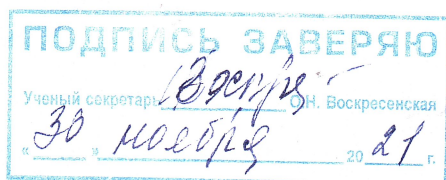 ПОДПИСЬ ЗАВЕРЯЮ
Ученый секретарь О.Н. Воскресенская
"30" ноября 2021 г.